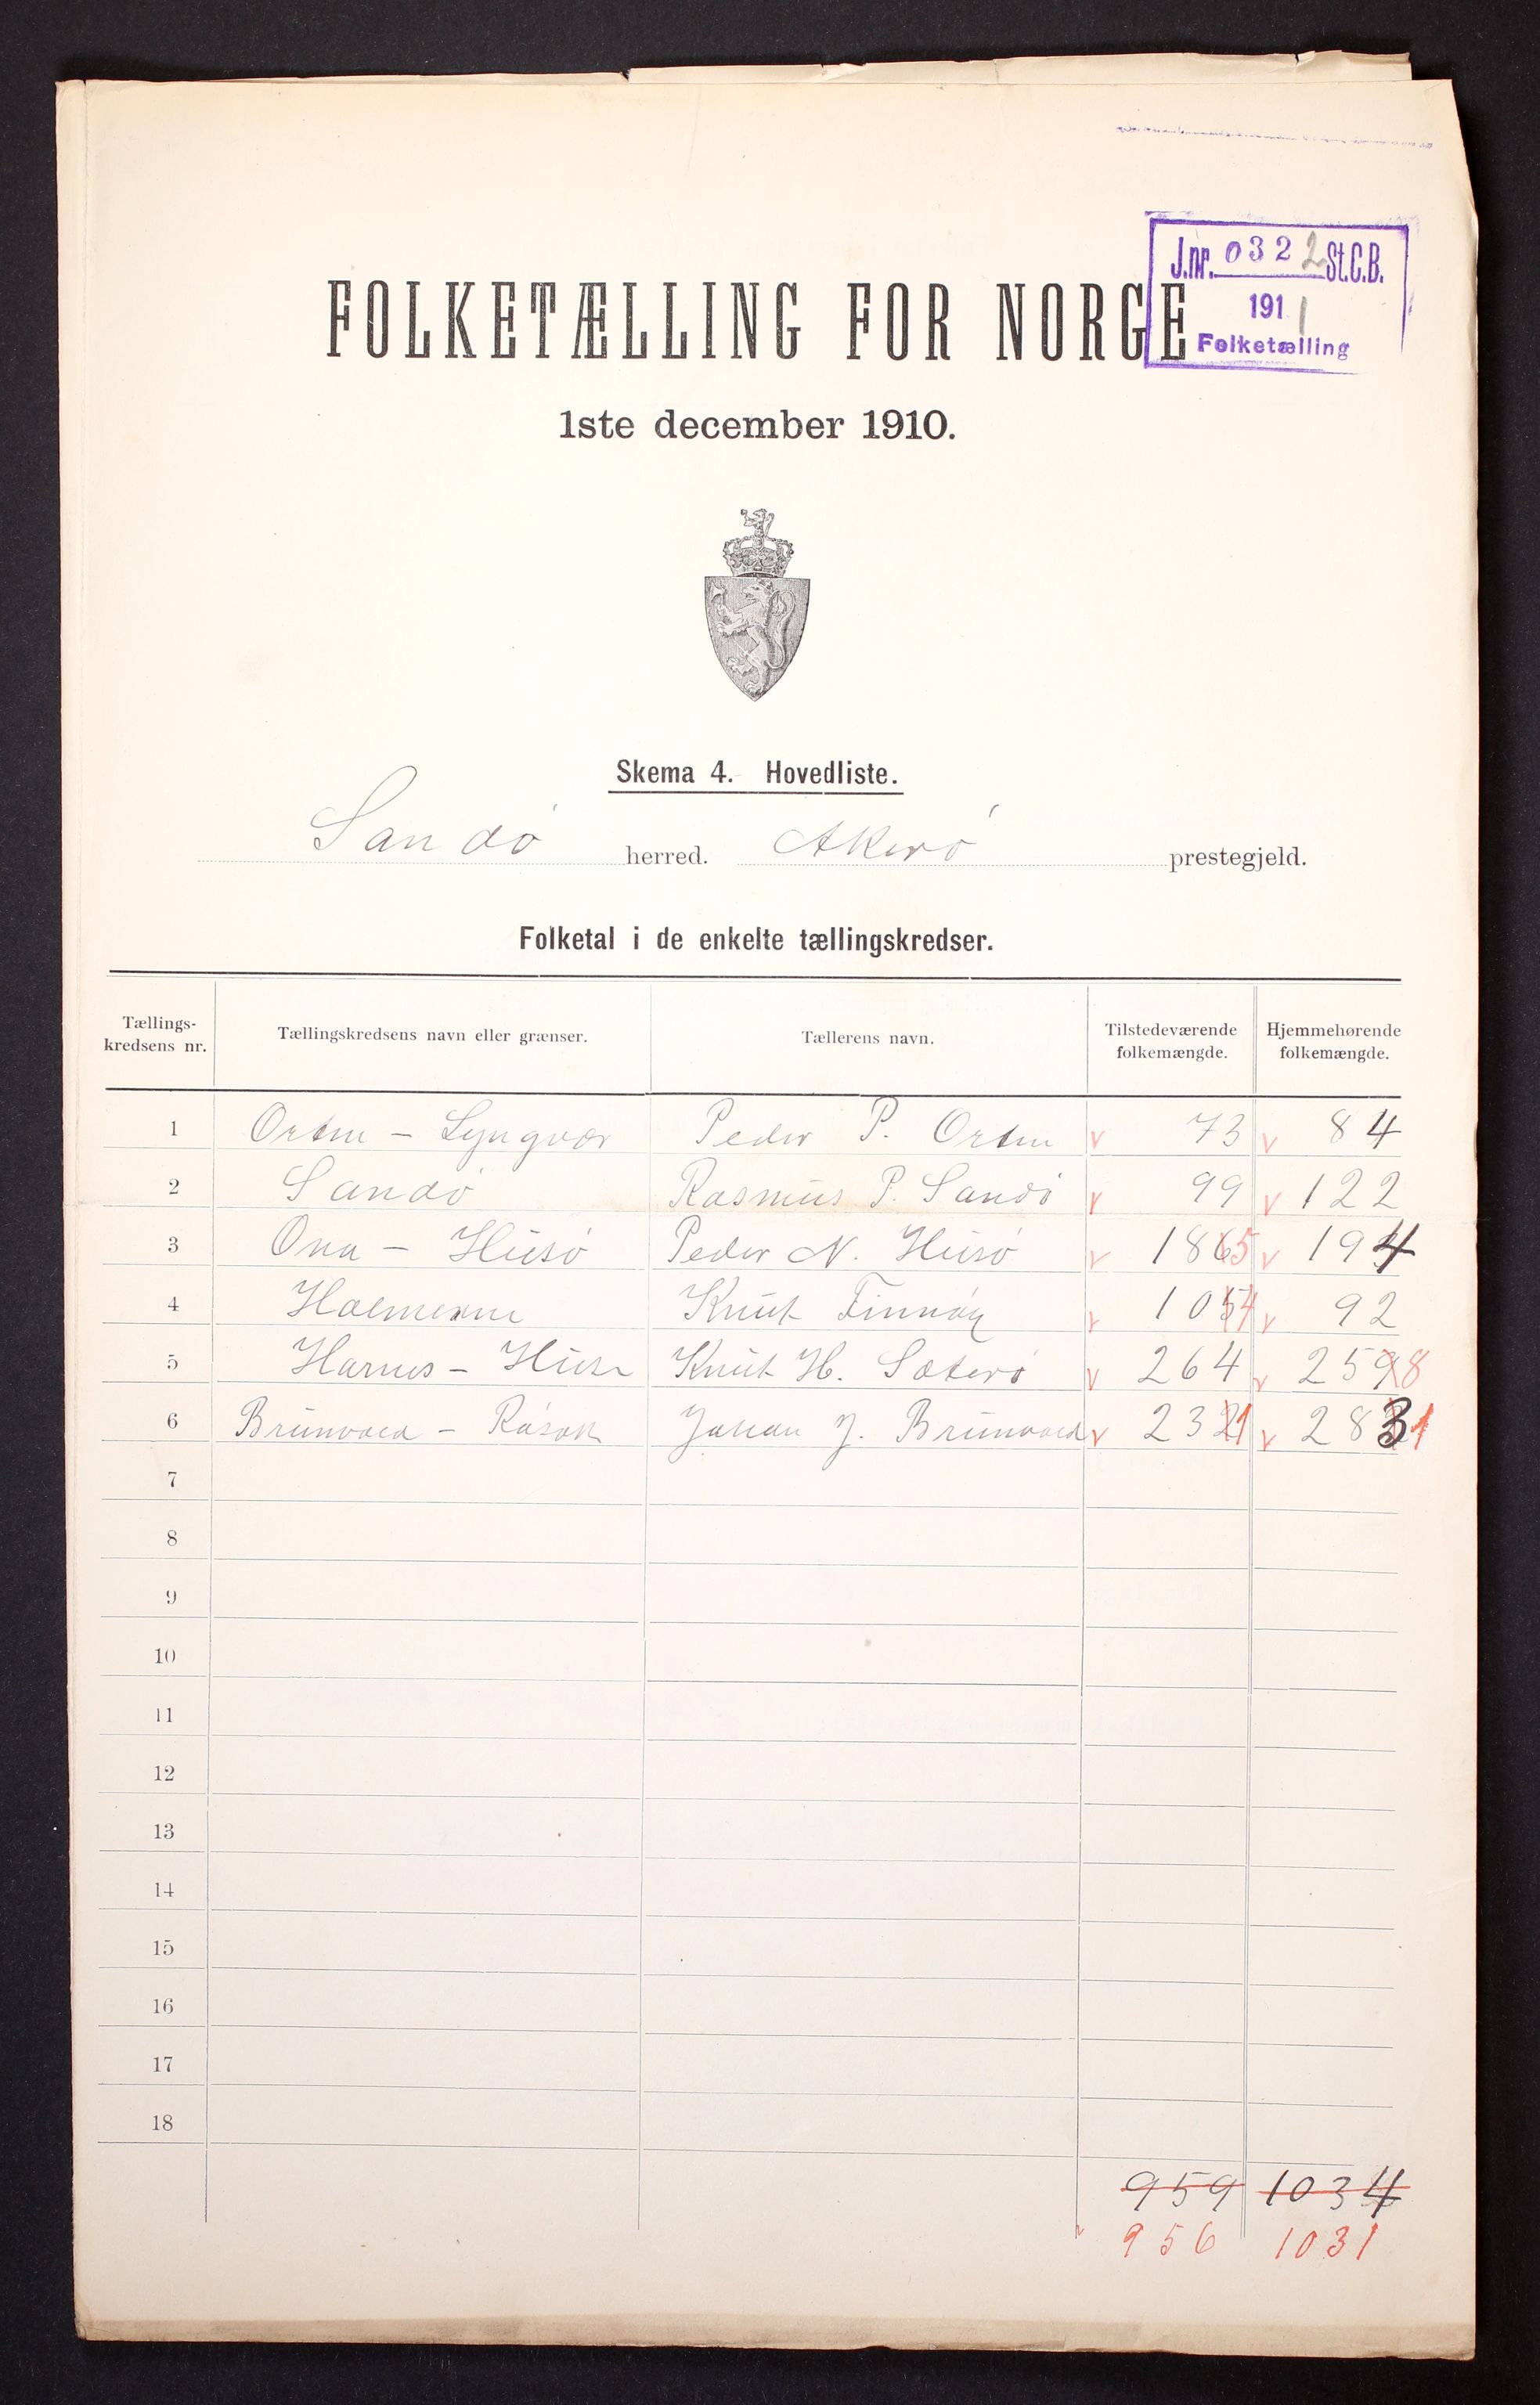 J.nr. 0322 St.C.B.
1911
Folketælling
FOLKETÆLLING FOR NORGE
1ste december 1910.
Skema 4. Hovedliste.
Sandø herred. Akerø prestegjeld.
Folketal i de enkelte tællingskredser.
Tællings-kredsens nr. Tællingskredsens navn eller grænser. Tællerens navn. Tilstedeværende folkemængde. Hjemmehørende folkemængde.
1 Orten - Lyngvær Peder P. Orten v 73 v 84
2 Sandø Rasmus P. Sandø v 99 v 122
3 Ona - Husø Peder N. Husø v 1865 v 194
4 Holmerne Knut Finnøy v 1054 v 92
5 Harnes - Huse Knut H. Sæterø v 264 v 2598
6 Brunvold - Råsok Johan J. Brunvold v 2321 v 2831
7
8
9
10
11
12
13
14
15
16
17
18
959 1034
956 1031